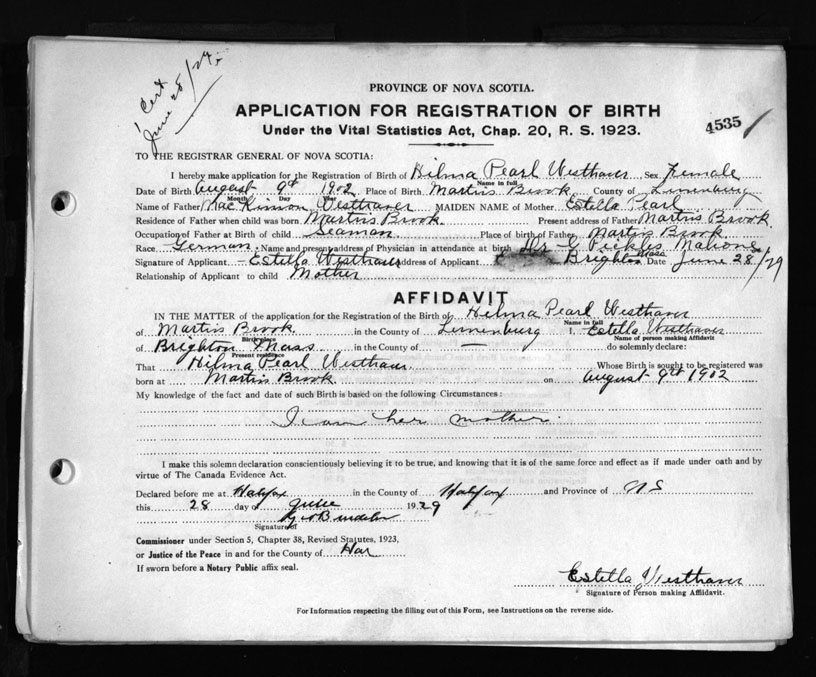 1 Cert
June 28/29.
PROVINCE OF NOVA SCOTIA.
APPLICATION FOR REGISTRATION OF BIRTH
Under the Vital Statistics Act, Chap. 20, R. S. 1923.
4535
TO THE REGISTRAR GENERAL OF NOVA SCOTIA:
I hereby make application for the Registration of Birth of Hilma Pearl Westhaver Sex Female
Name in full
Date of Birth August 9th 1902 Place of Birth Martins Brook County of Lunenburg
Month Day Year
Name of Father MacKinson Westhaver MAIDEN NAME of Mother Estella Pearl
Residence of Father when child was born Martins Brook. Present address of Father Martins Brook.
Occupation of Father at Birth of child Seaman. Place of birth of Father Martins Brook
Race German. Name and present address of Physician in attendance at birth Dr G Pickles Mahone
Signature of Applicant - Estella Westhaver Address of Applicant Brighton Mass Date June 28/29
Relationship of Applicant to child Mother
AFFIDAVIT
IN THE MATTER of the application for the Registration of the Birth of Hilma Pearl Westhaver
Name in full
of Martins Brook in the County of Lunenburg I, Estella Westhaver
Birthplace Name of person making Affidavit
of Brighton Mass in the County of — do solemnly declare:
Present residence
That Hilma Pearl Westhaver Whose Birth is sought to be registered was
born at Martins Brook on August 9th 1902
My knowledge of the fact and date of such Birth is based on the following Circumstances:
I am her mother.
I make this solemn declaration conscientiously believing it to be true, and knowing that it is of the same force and effect as if made under oath and by
virtue of The Canada Evidence Act.
Declared before me at Halifax in the County of Halifax and Province of N S
this 28 day of June 1929
Signature of
Commissioner under Section 5, Chapter 38, Revised Statutes, 1923,
or Justice of the Peace in and for the County of
If sworn before a Notary Public affix seal.
Estella Westhaver
Signature of Person making Affidavit.
For Information respecting the filling out of this Form, see Instructions on the reverse side.